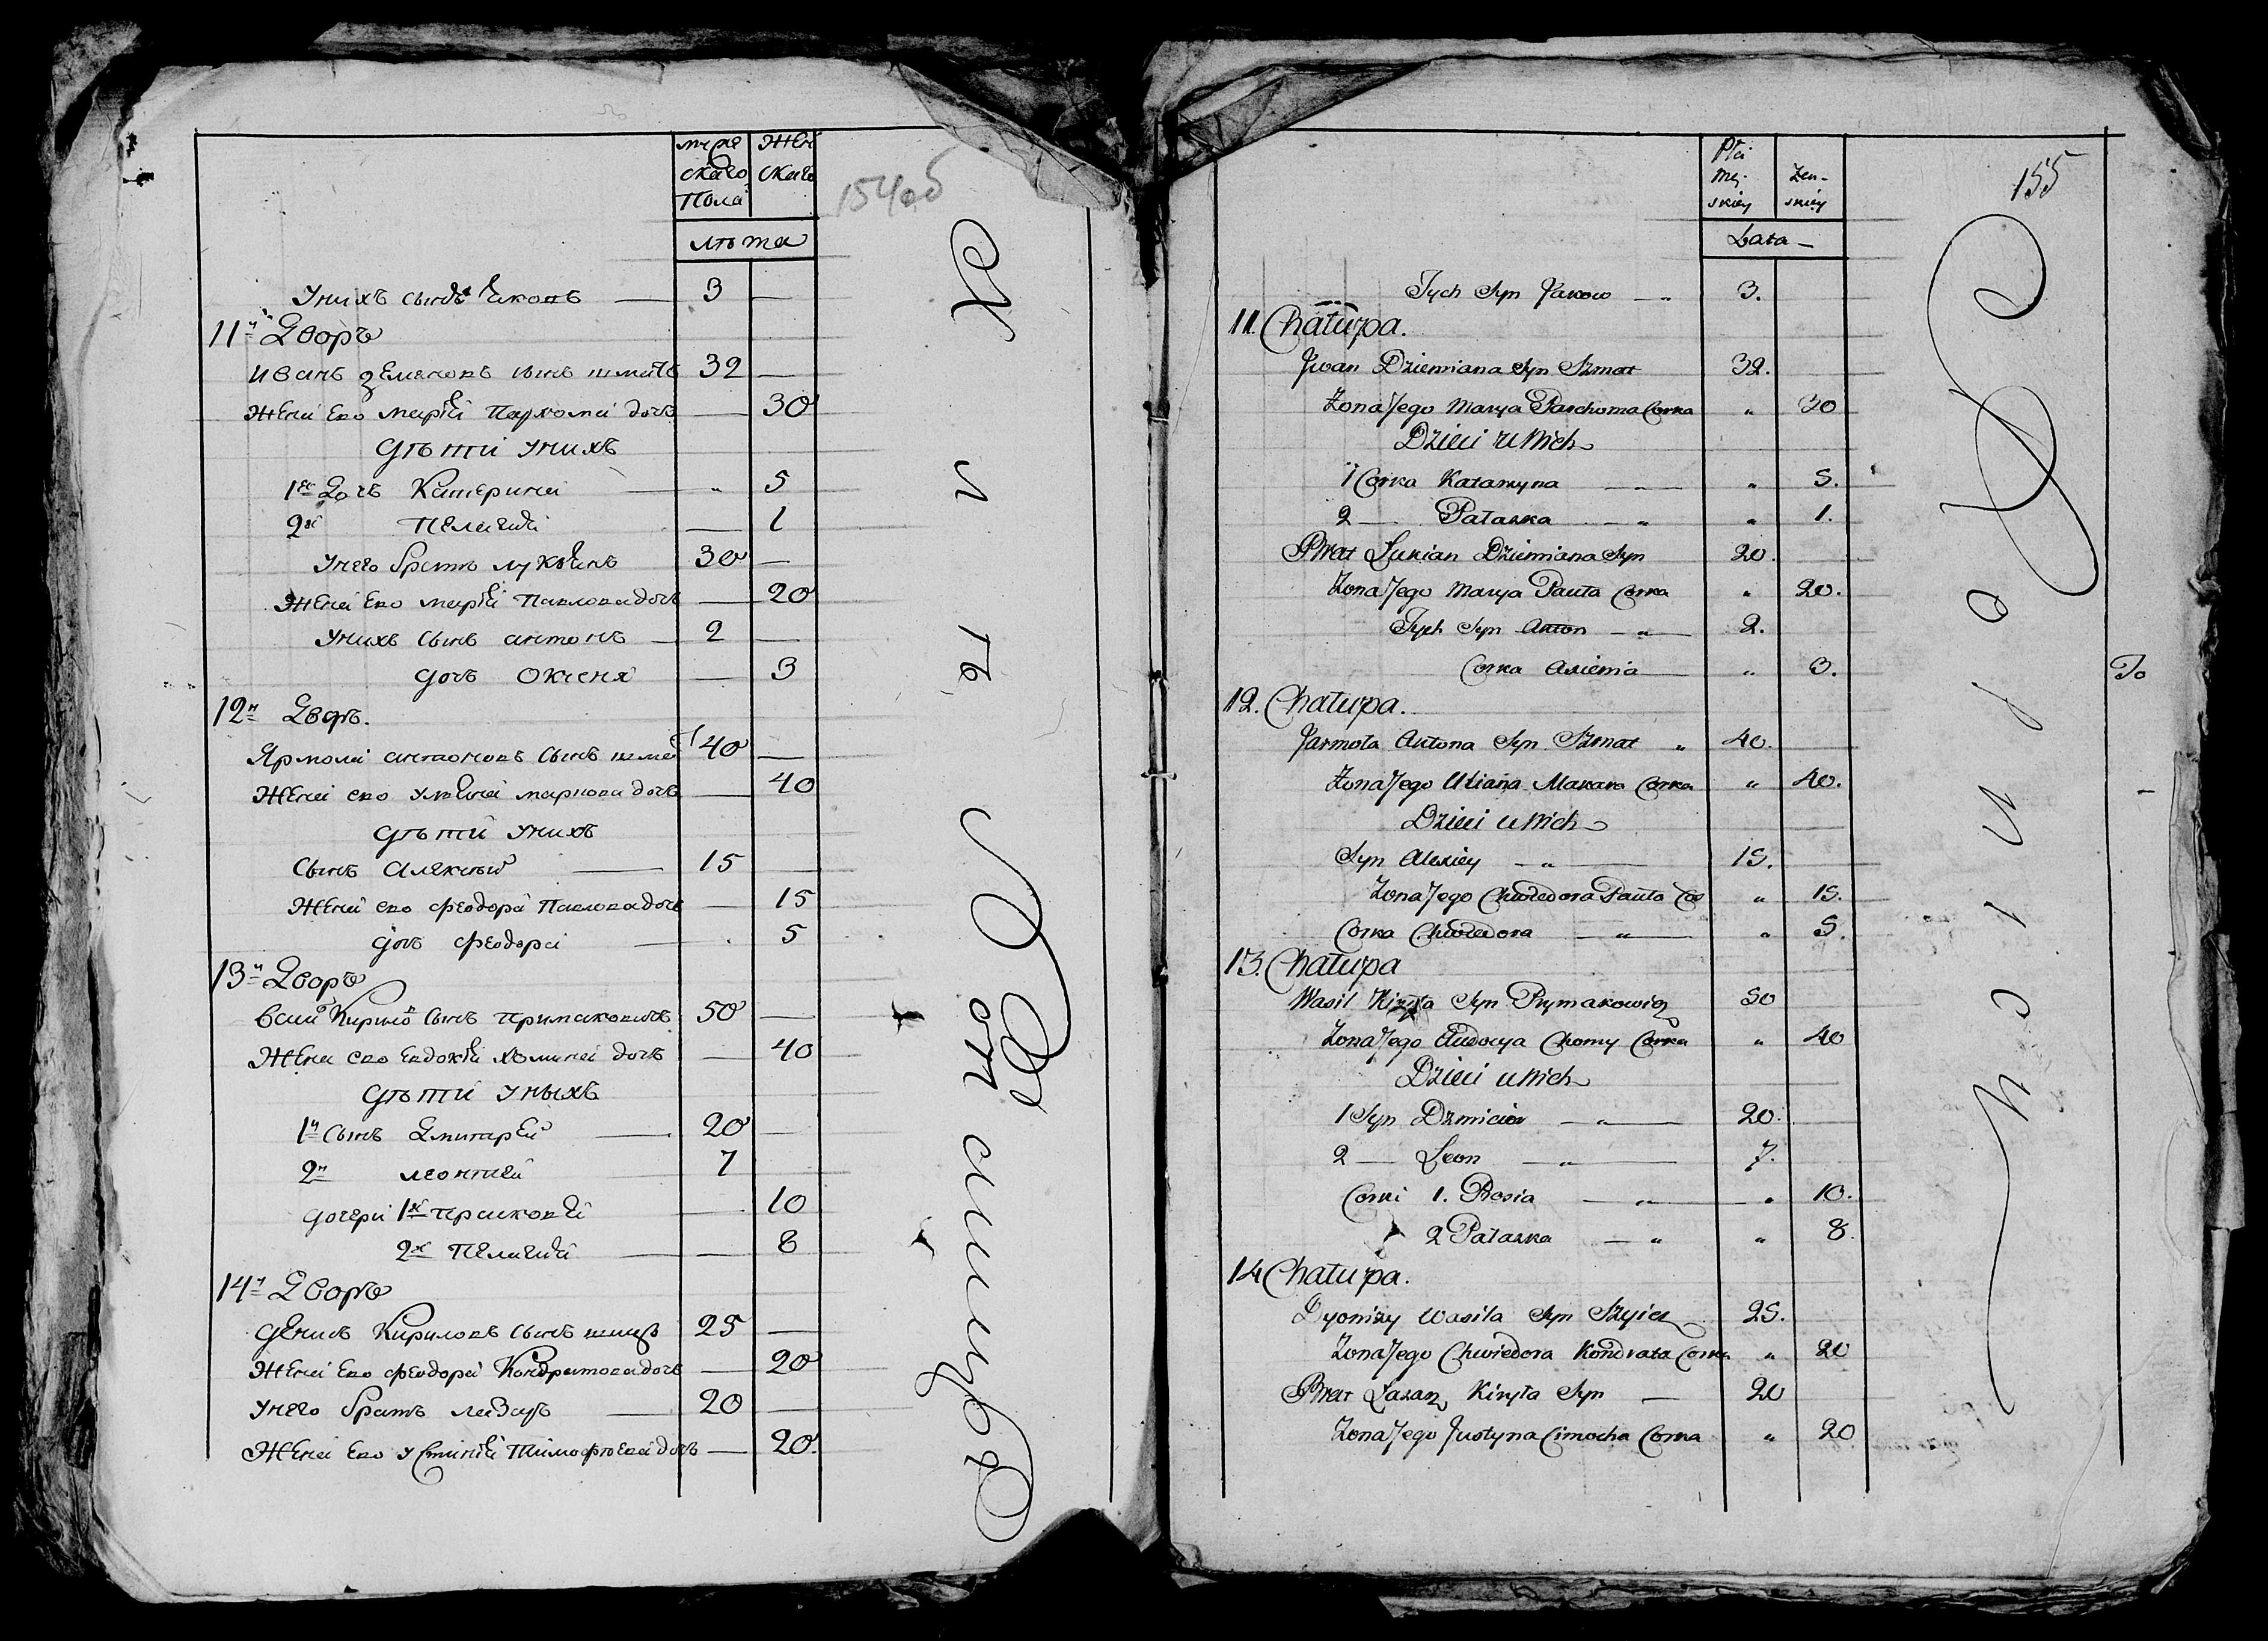 муже
скаго
Пола
Жен
скаго
154об
лѣта
Унихъ сынъ Яковъ — 3 —
11й Дворъ
Иванъ Демяновъ сынъ шматъ 32 —
Жена Ево Марія Пархома дочь — 30
Дѣти Унихъ
1я Дочь Катерина — „ 5
2я Пелагия — 1
Унего братъ Лукянъ 30 —
Жена Ево Марія Павлова дочь — 20
Унихъ сынъ антонъ — 2 —
дочь Оксеня — 3
12й Дворъ.
Ярмола антоновъ сынъ шма 40 —
Жена ево Уляна маркова дочь — 40
Дѣти Унихъ
Сынъ Алексѣй — 15 —
Жена ево феодора Павлова дочь — 15
дочь феодора — 5
13й Дворъ
Васил Кирило сынъ примаковичъ 50 —
Жена ево Евдокія хомина дочь — 40
Дѣти Уныхъ
1й сынъ Дмитарей — 20 —
2й леонтей 7
дочери 1я прасковея — 10
2я Пелагия — 8
14й Дворъ
Денисъ Кириловъ сынъ 25 —
Жена Ево феодора Кондратова дочь — 20
Унего братъ лазаръ — 20 —
Жена Ево Устинія Тимофѣева дочь — 20.
155
Płci
Mę-
skiey
żeń-
skiey
Lata —
Tych Syn Jakow — „ 3.
11. Chałupa.
Jwan Dziemiana Syn Szmat 32.
Zona Jego Marya Parchoma Corka „ 30
Dzieci u Nich
1 Corka Katarzyna — „ 5.
2 — Pałaska — „ „ 1.
Brat Łukian Dziemiana Syn 20.
Zona Jego Marya Pauła Corka „ 20.
Tych Syn Anton — „ — 2.
Corka Axienia — „ 3.
To
12. Chałupa.
Jarmoła Antona Syn Szmat „ 40.
Zona Jego Uliana Makara Corka „ 40.
Dzieci u Nich
Syn Alexiey — „ — 15.
Zona Jego Chwiedora Pauła Cor „ 15.
Corka Chwiedora — „ — „ 5.
13. Chałupa
Wasil Kiryła Syn Prymakowicz 50
Zona Jego Eudocya Chomy Corka „ 40
Dzieci u Nich
1 Syn Dzmicier — „ — 20.
2 — Leon — „ — 7.
Corki 1. Prosia — „ — „ 10.
2 Pałaska — „ „ 8.
14 Chałupa.
Dyonizy Wasila Syn Szyicz 25.
Zona Jego Chwiedora Kondrata Corka „ 20
Brat Łazarz Kiryła Syn — 20
Zona Jego Justyna Cimocha Corka „ 20